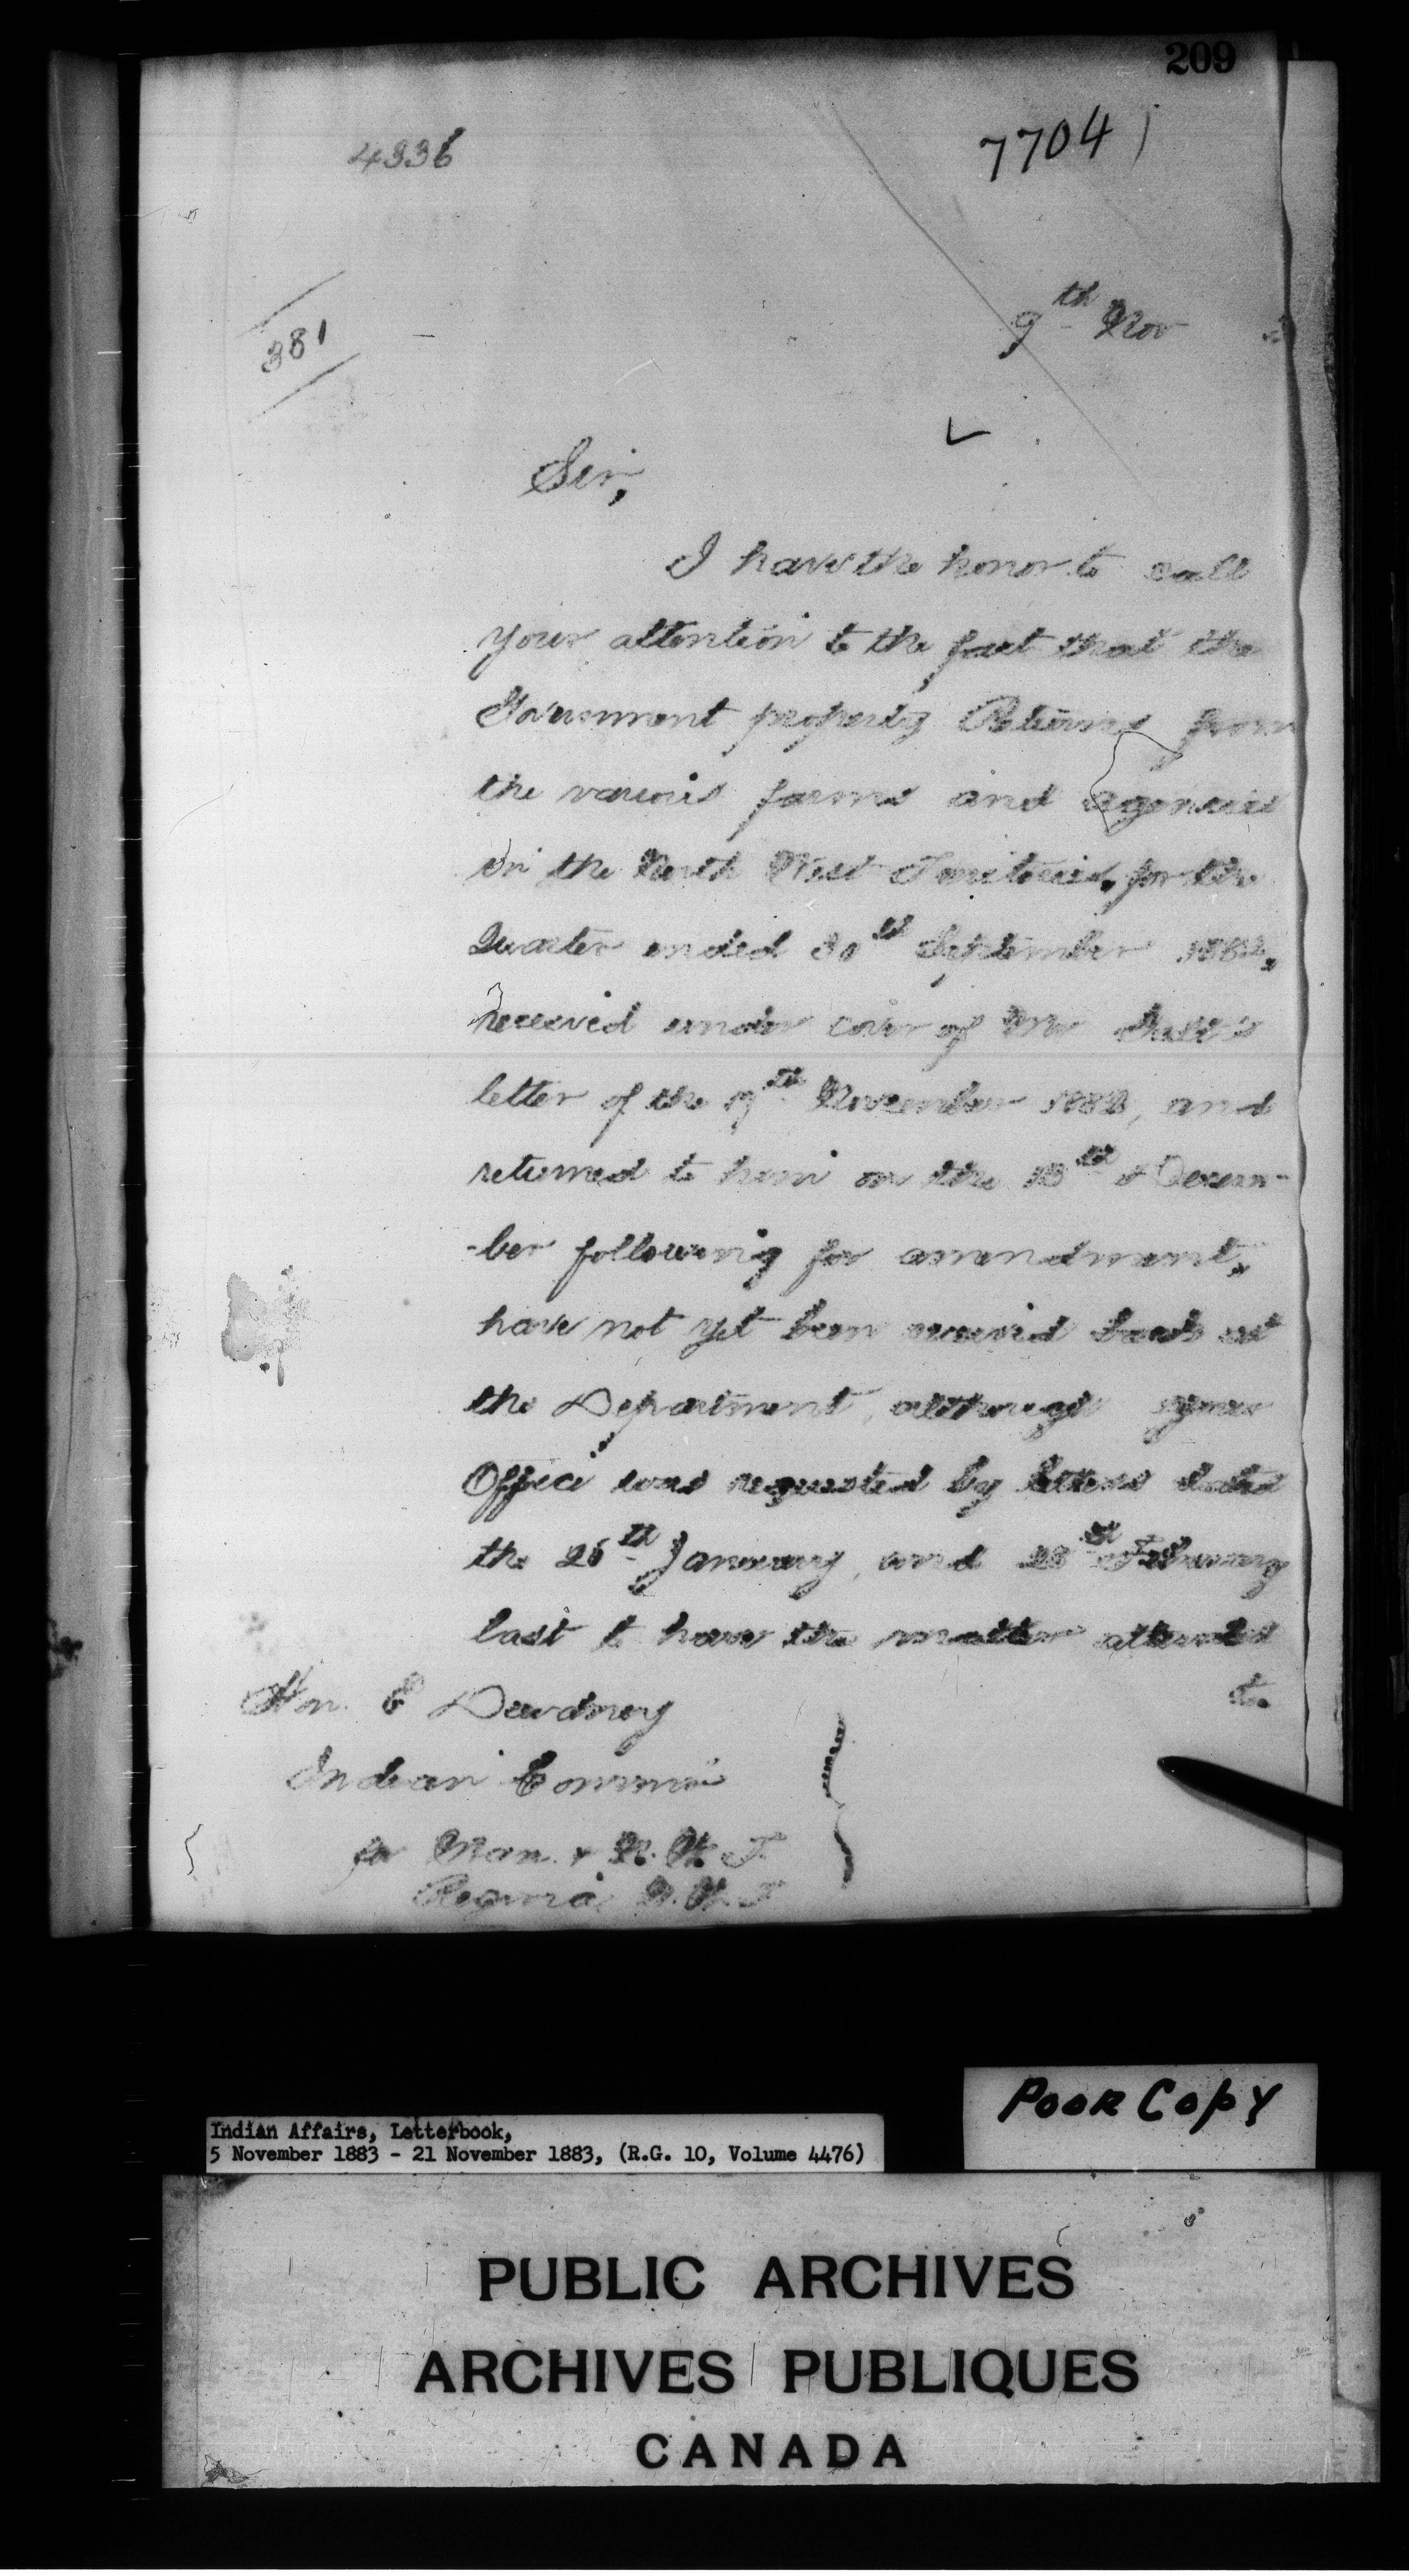 209
4336
7704
9th Nov 3
381
Sir,
I have the honor to call
your attention to the fact that the
Government property Returns from
the various farms and agencies
in the North West Territories, for the
Quarter ended 30th September 1882,
received under cover of Mr
letter of the 17th November 1882, and
returned to him on the 13th Decem-
-ber following for amendment,
have not yet been received back at
the Department, although your
Office was requested by letters dated
the 26th January, and 28th February
last to have the matter attended
to.
Hon. E Dewdney
Indian Commr
for Man. & N. W. T.
Regina N. W. T.
Poor Copy
Indian Affairs, Letterbook,
5 November 1883 - 21 November 1883, (R.G. 10, Volume 4476)
PUBLIC ARCHIVES
ARCHIVES PUBLIQUES
CANADA